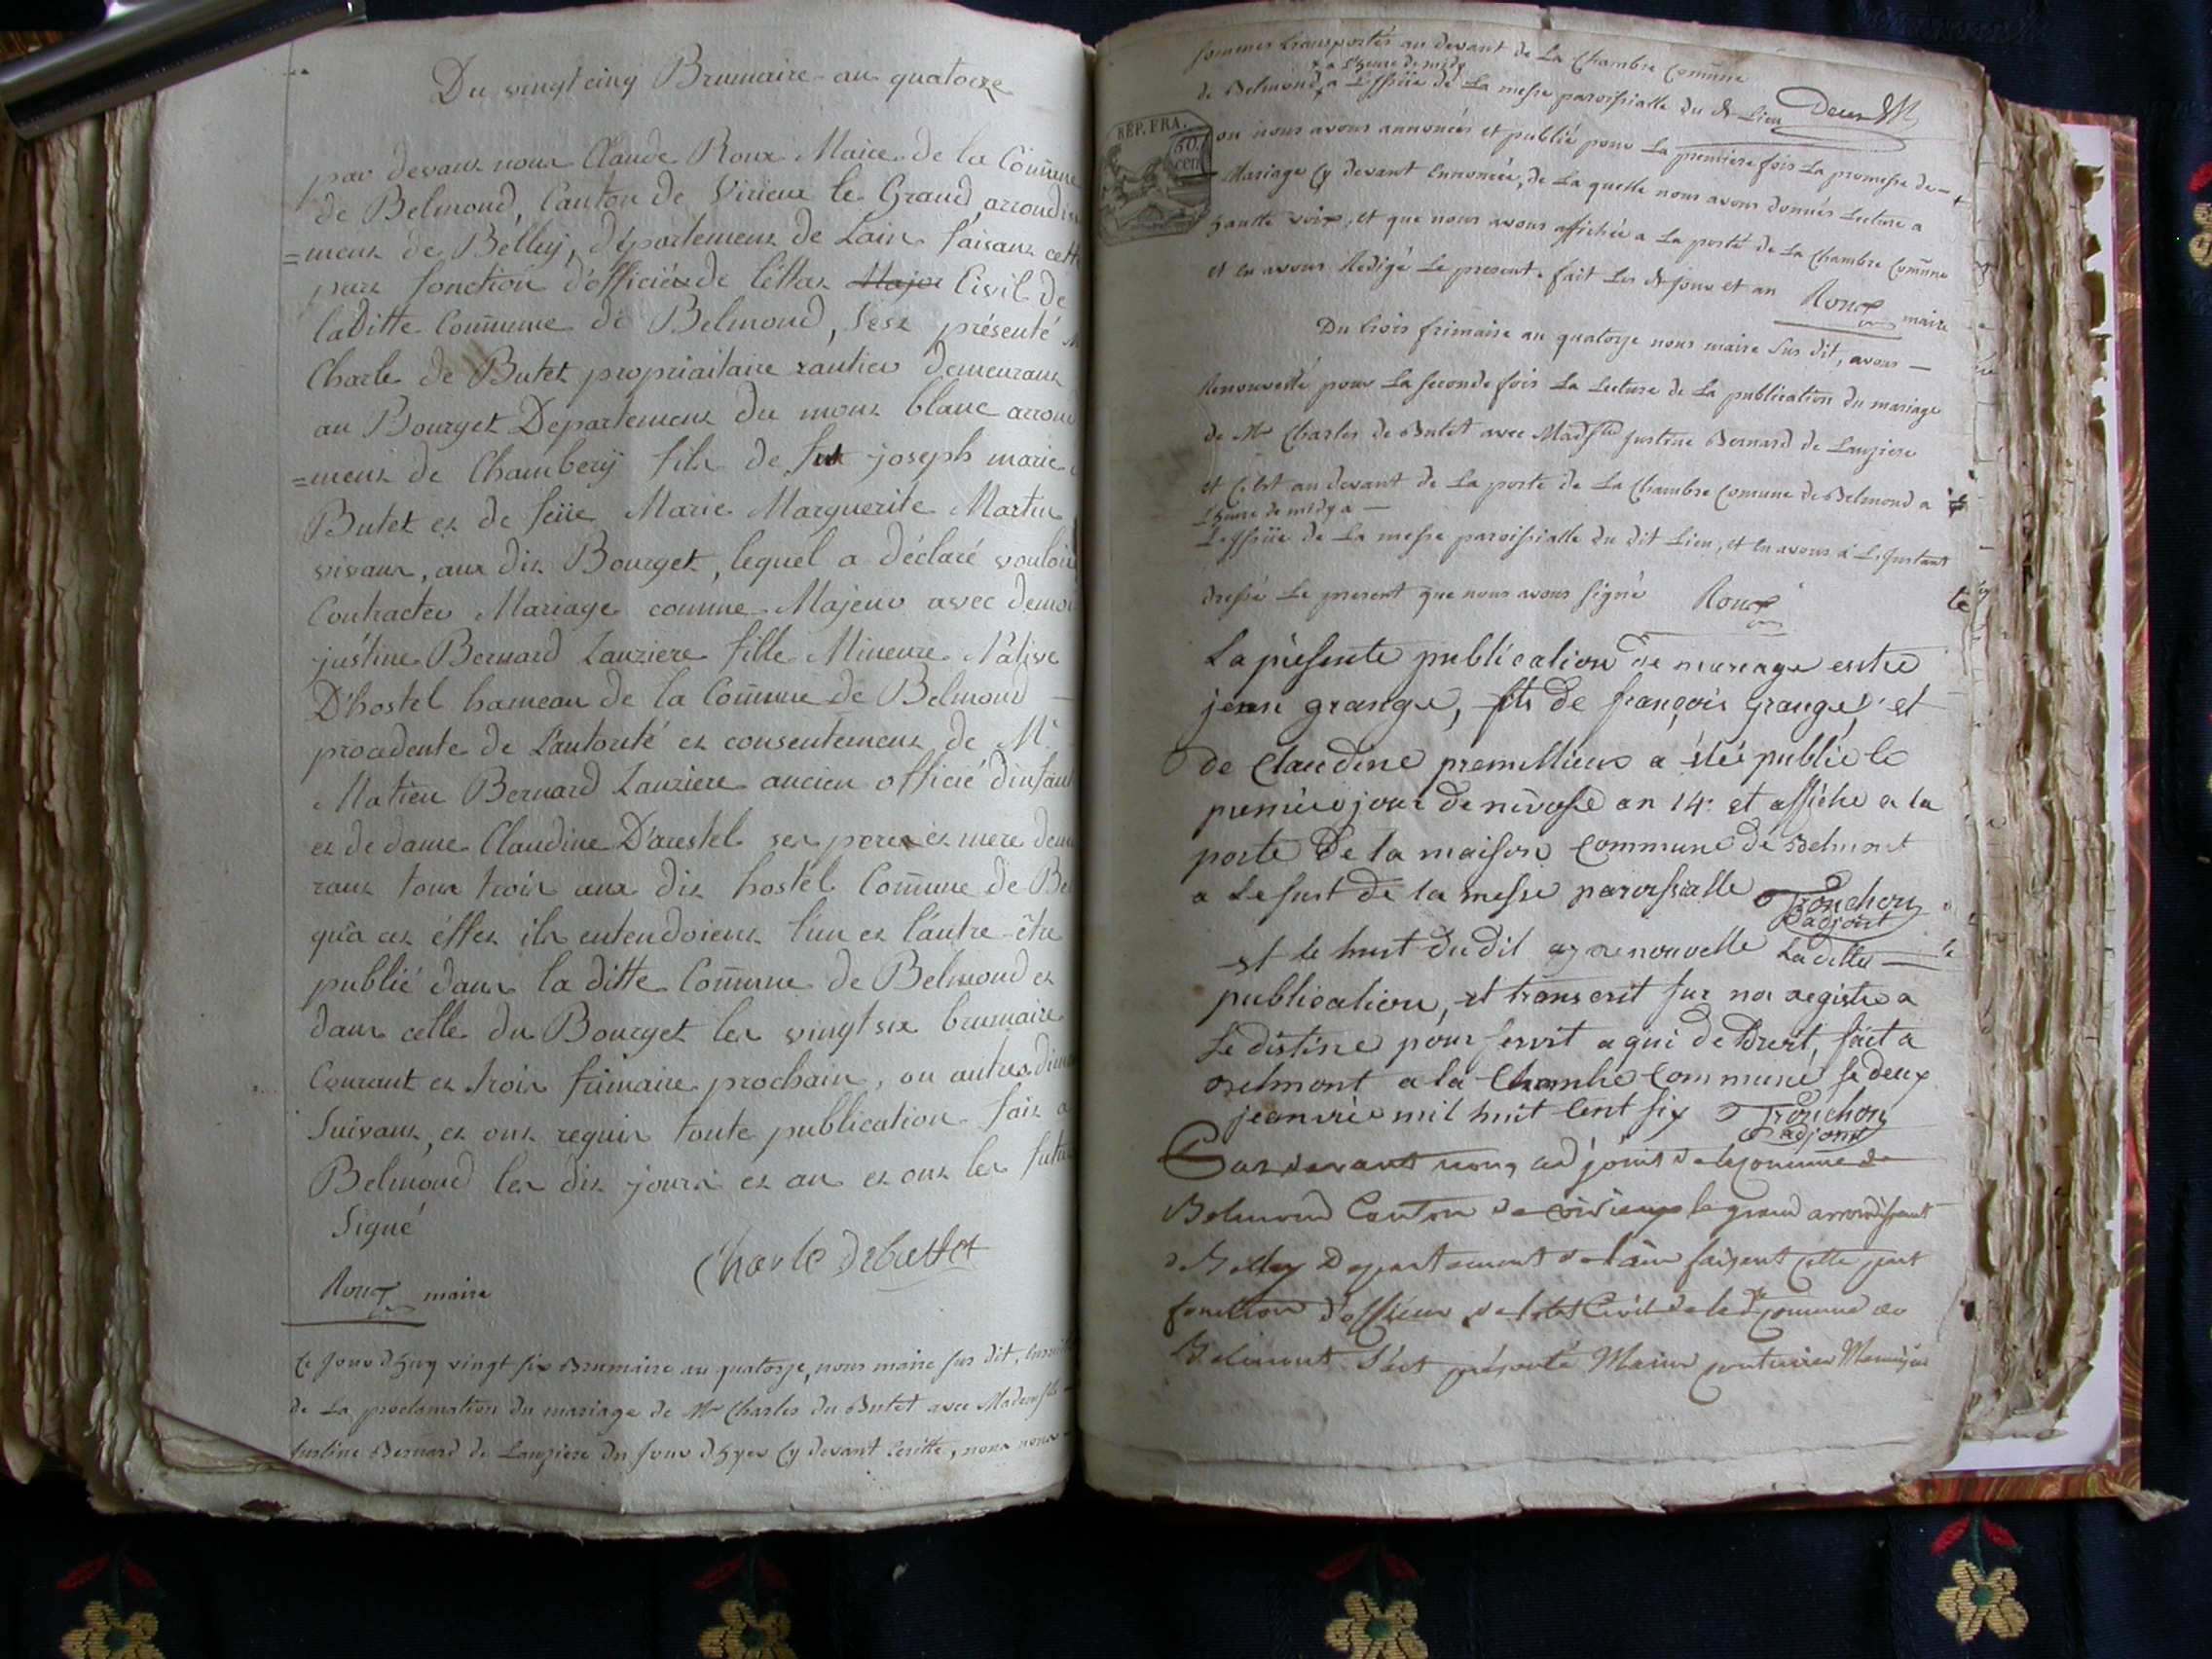 Du vingt cinq Brumaire an quatorze
par devant nous Claude Roux Maire de la Com̃une
de Belmond, Canton de Virieux le Grand, arrondis
=ment de Belley, département de Lain faisant cette
part fonction d'éfficier de l'éttat Major Civil de
laditte Com̃une de Belmond, sest présenté M
Charle de Butet propriaitaire rantier demeurant
au Bourget Departement du mont blanc arron
=ment de Chambery fils de fut joseph marie
Butet et de feüe Marie Marguerite Martin
vivant, aux dit Bourget, lequel a déclaré vouloir
Contracter Mariage comme Majeur avec demoi
justine Bernard Lauziere fille Mineure Native
D'hostel hameau de la Com̃une de Belmond
procedente de L'autorité et consentement de Mr
Matieu Bernard Lauziere ancien officié dinfant
et de dame Claudine D'arestel ses pere et mere demeu
rant tous trois aux dit hostél Com̃une de Be
qu'a cet éffet ils entendoient l'un et l'autre être
publié dans la ditte Com̃une de Belmond et
dans celle du Bourget les vingt six brumaire
Courant et trois frimaire prochain, ou autres dim
Suivant, et ont requis toute publication fait a
Belmond les dit jours et an et ont les futu
Signé
Charle debuttet
Roux maire
Ce Jourdhuy vingt six Brumaire an quatorze, nous maire sus dit, ensuitte
de La proclamation du mariage de Mr Charles du Butet avec Mademslle
Justine Bernard de Lauziere du Jour dhyer Cy devant Ecritte, nous nous
sommes transportés au devant de La Chambre Com̃une
a L'heure de midy
de Belmond, a L'Issüe de La messe paroissialle du dt Lieu
RÉP. FRA.
50
cent
ou nous avons annoncés et publié pour La premiere fois La promesse de
Mariage Cy devant Ennoncée, de La quelle nous avons donnés Lecture a
hautte voix, et que nous avons affichée a La porte de La Chambre Com̃une
et en avons Redigé Le present. fait Les dt jour et an Roux maire
Du trois frimaire an quatorze nous maire Sus dit, avons
Renouvellé pour La seconde fois La Lecture de La publication du mariage
de Mr Charles de Butet avec Madslle Justine Bernard de Lauziere
et C'est au devant de La porte de La Chambre Comune de Belmond a
L'heure de midy a
L'Issüe de La messe paroissialle du dit Lieu, et en avons á L'Instant
dressé Le present que nous avons signé Roux
La présente publication de mariage entre
jean grange, fils de françois grange, et
de Claudine premillieux a été publié le
premier jour de nivose an 14. et affiche a la
porte de la maison commune de Belmont
a Lessuit de la messe paroissialle Tronchon
adjoint
et le huit du dit ay renouvelle Laditte
publication, et transcrit sur nos registre a
se distiné pour servit a qui de Droit, fait a
Belmont a la Chambre commune le deux
jeanvié mil huit Cent six Tronchon
adjoint
Par devant nous adjoint de la Comune de
Belmond Canton de Virieux le grand arrondissment
de Belley Departement de l'ain faisant cette part
fonction d'officier de letat Civil de la dte Comune de
Belmont S'est présenté